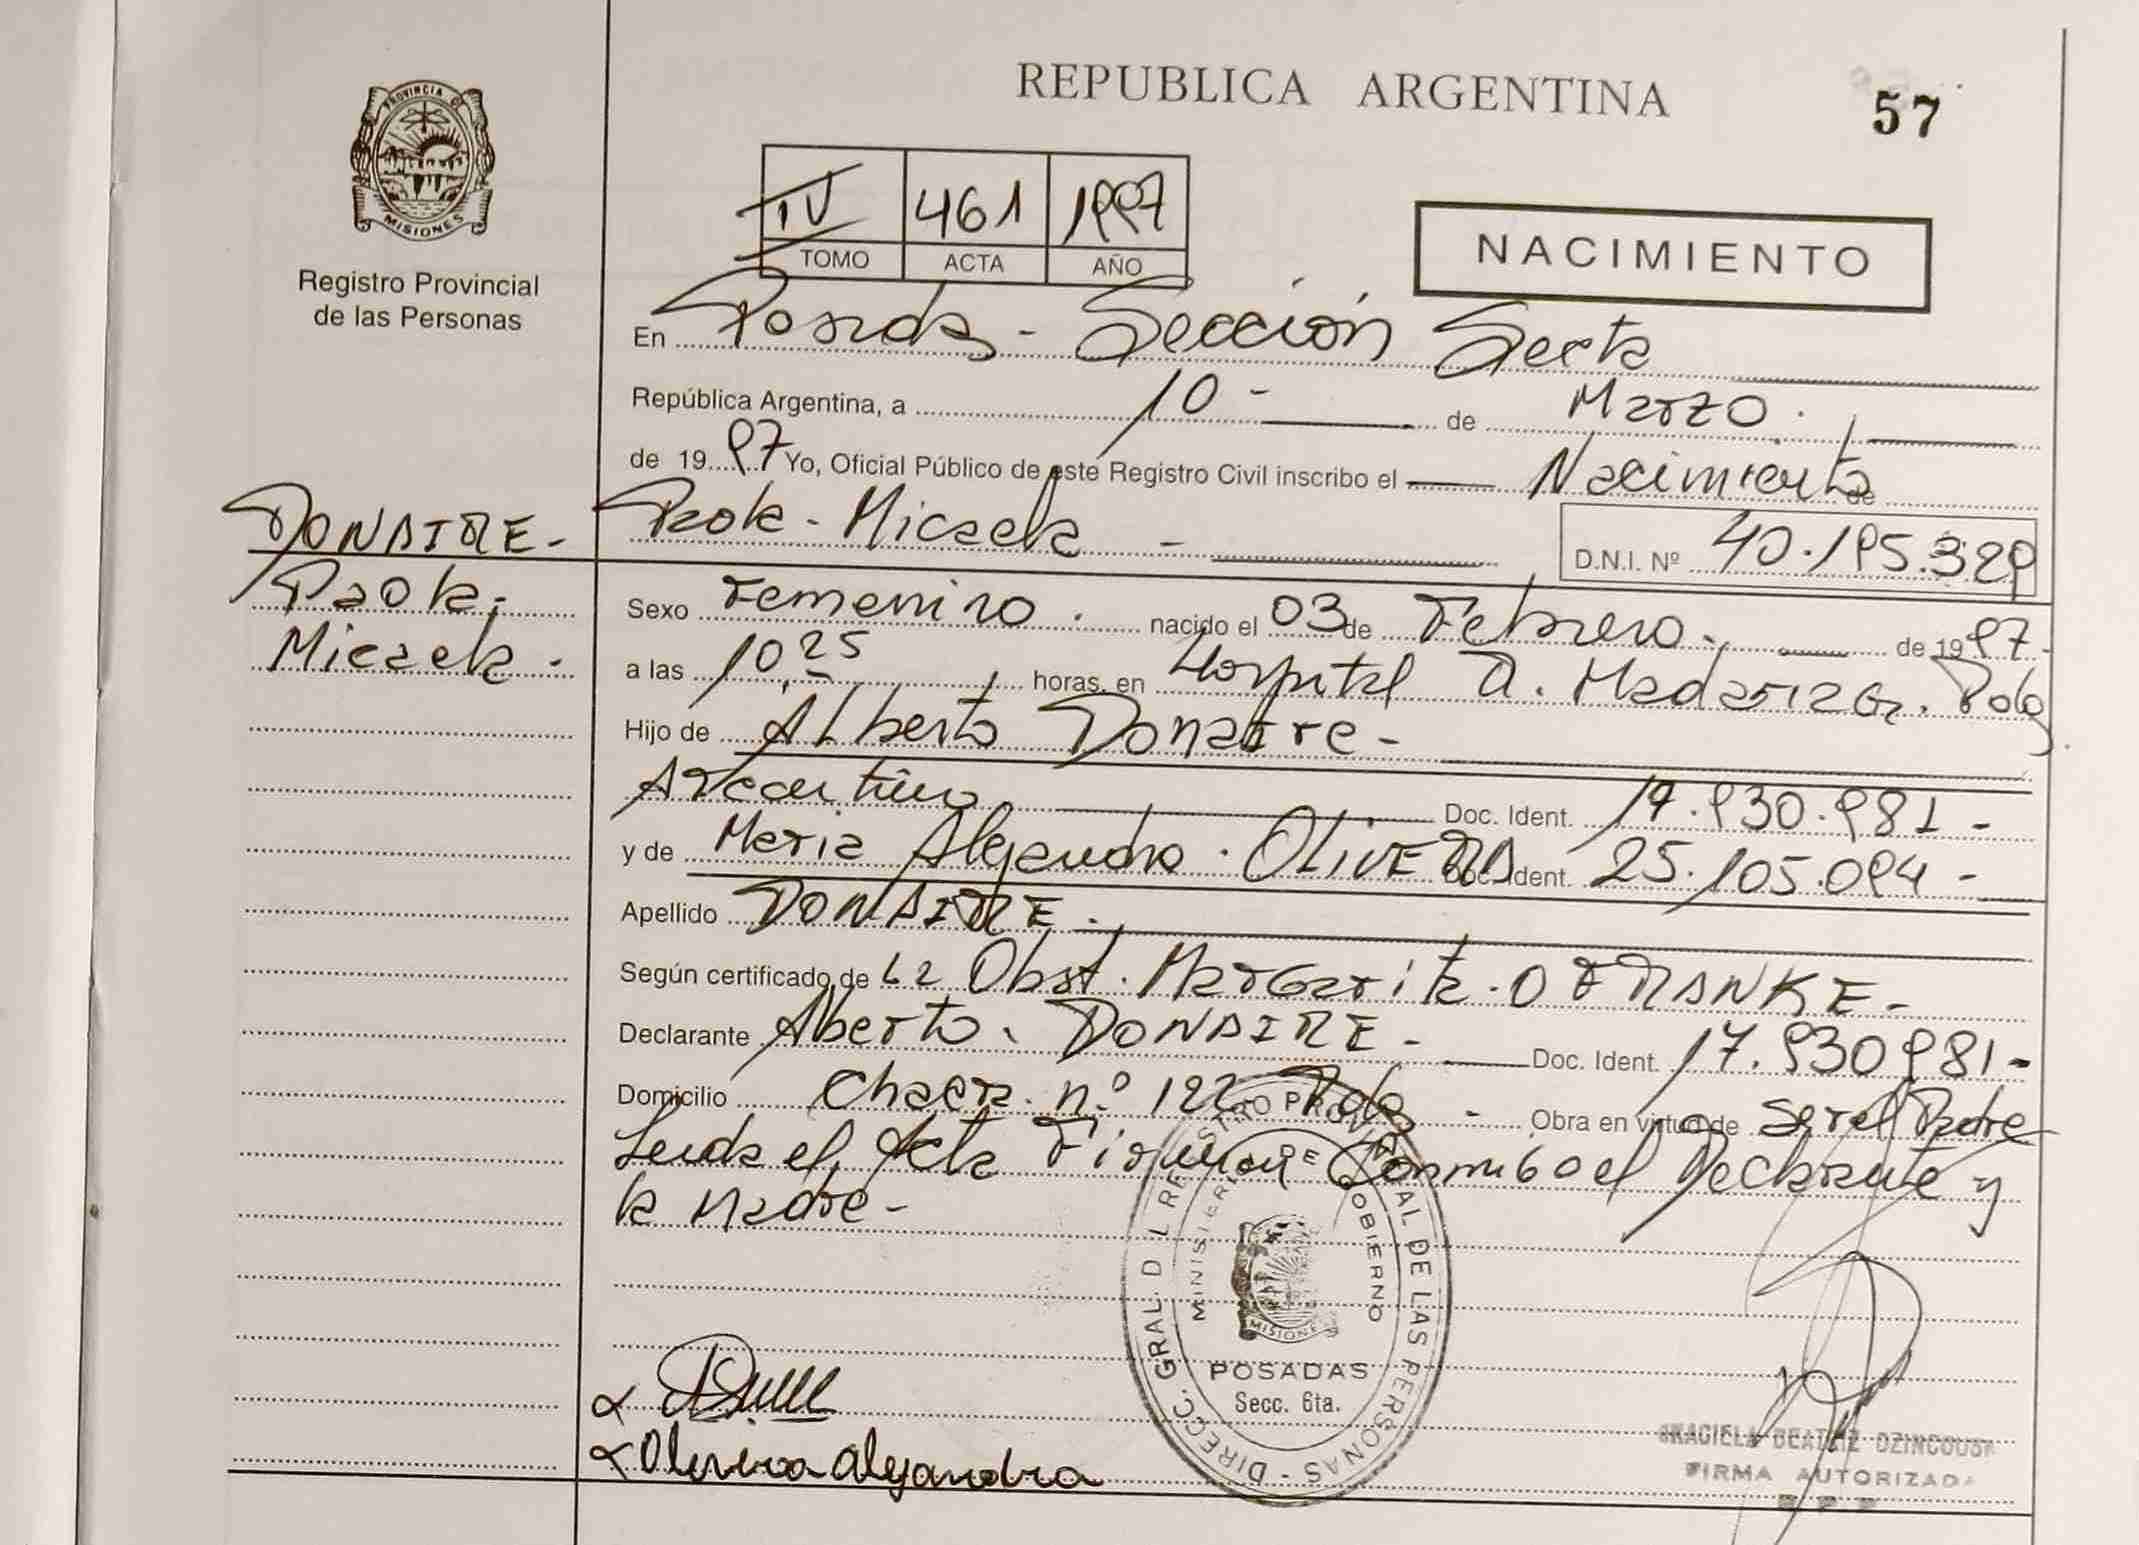 REPUBLICA ARGENTINA
57
PROVINCIA DE
MISIONES
Registro Provincial
de las Personas
IV 461 1997
TOMO ACTA AÑO
NACIMIENTO
En Posadas - Sección Sexta
República Argentina, a 10 - de Marzo.
de 1997 Yo, Oficial Público de este Registro Civil inscribo el Nacimiento de
DONAIRE - Paola - Micaela - D.N.I. Nº 40.195.329
Paola - Sexo Femenino. nacido el 03 de Febrero. de 1997.
Micaela - a las 10,25 horas, en Hospital R. Madariaga. Pdas
Hijo de Alberto Donaire -
Argentino Doc. Ident. 17.930.981 -
y de Maria Alejandra. OLIVERA Doc. Ident. 25.105.094 -
Apellido DONAIRE -
Según certificado de La Obst. Margarita. O FRANKE -
Declarante Alberto. DONAIRE - Doc. Ident. 17.930981 -
Domicilio Chacra nº 122 Pdas - Obra en virtud de Ser el Padre
Leida el Acta Firman Conmigo el Declarante y
la Madre -
DIRECC. GRAL. DEL REGISTRO PROVINCIAL DE LAS PERSONAS -
MINISTERIO DE GOBIERNO
MISIONES
POSADAS
Secc. 6ta.
Olivera Alejandra
GRACIELA BEATRIZ
FIRMA AUTORIZADA